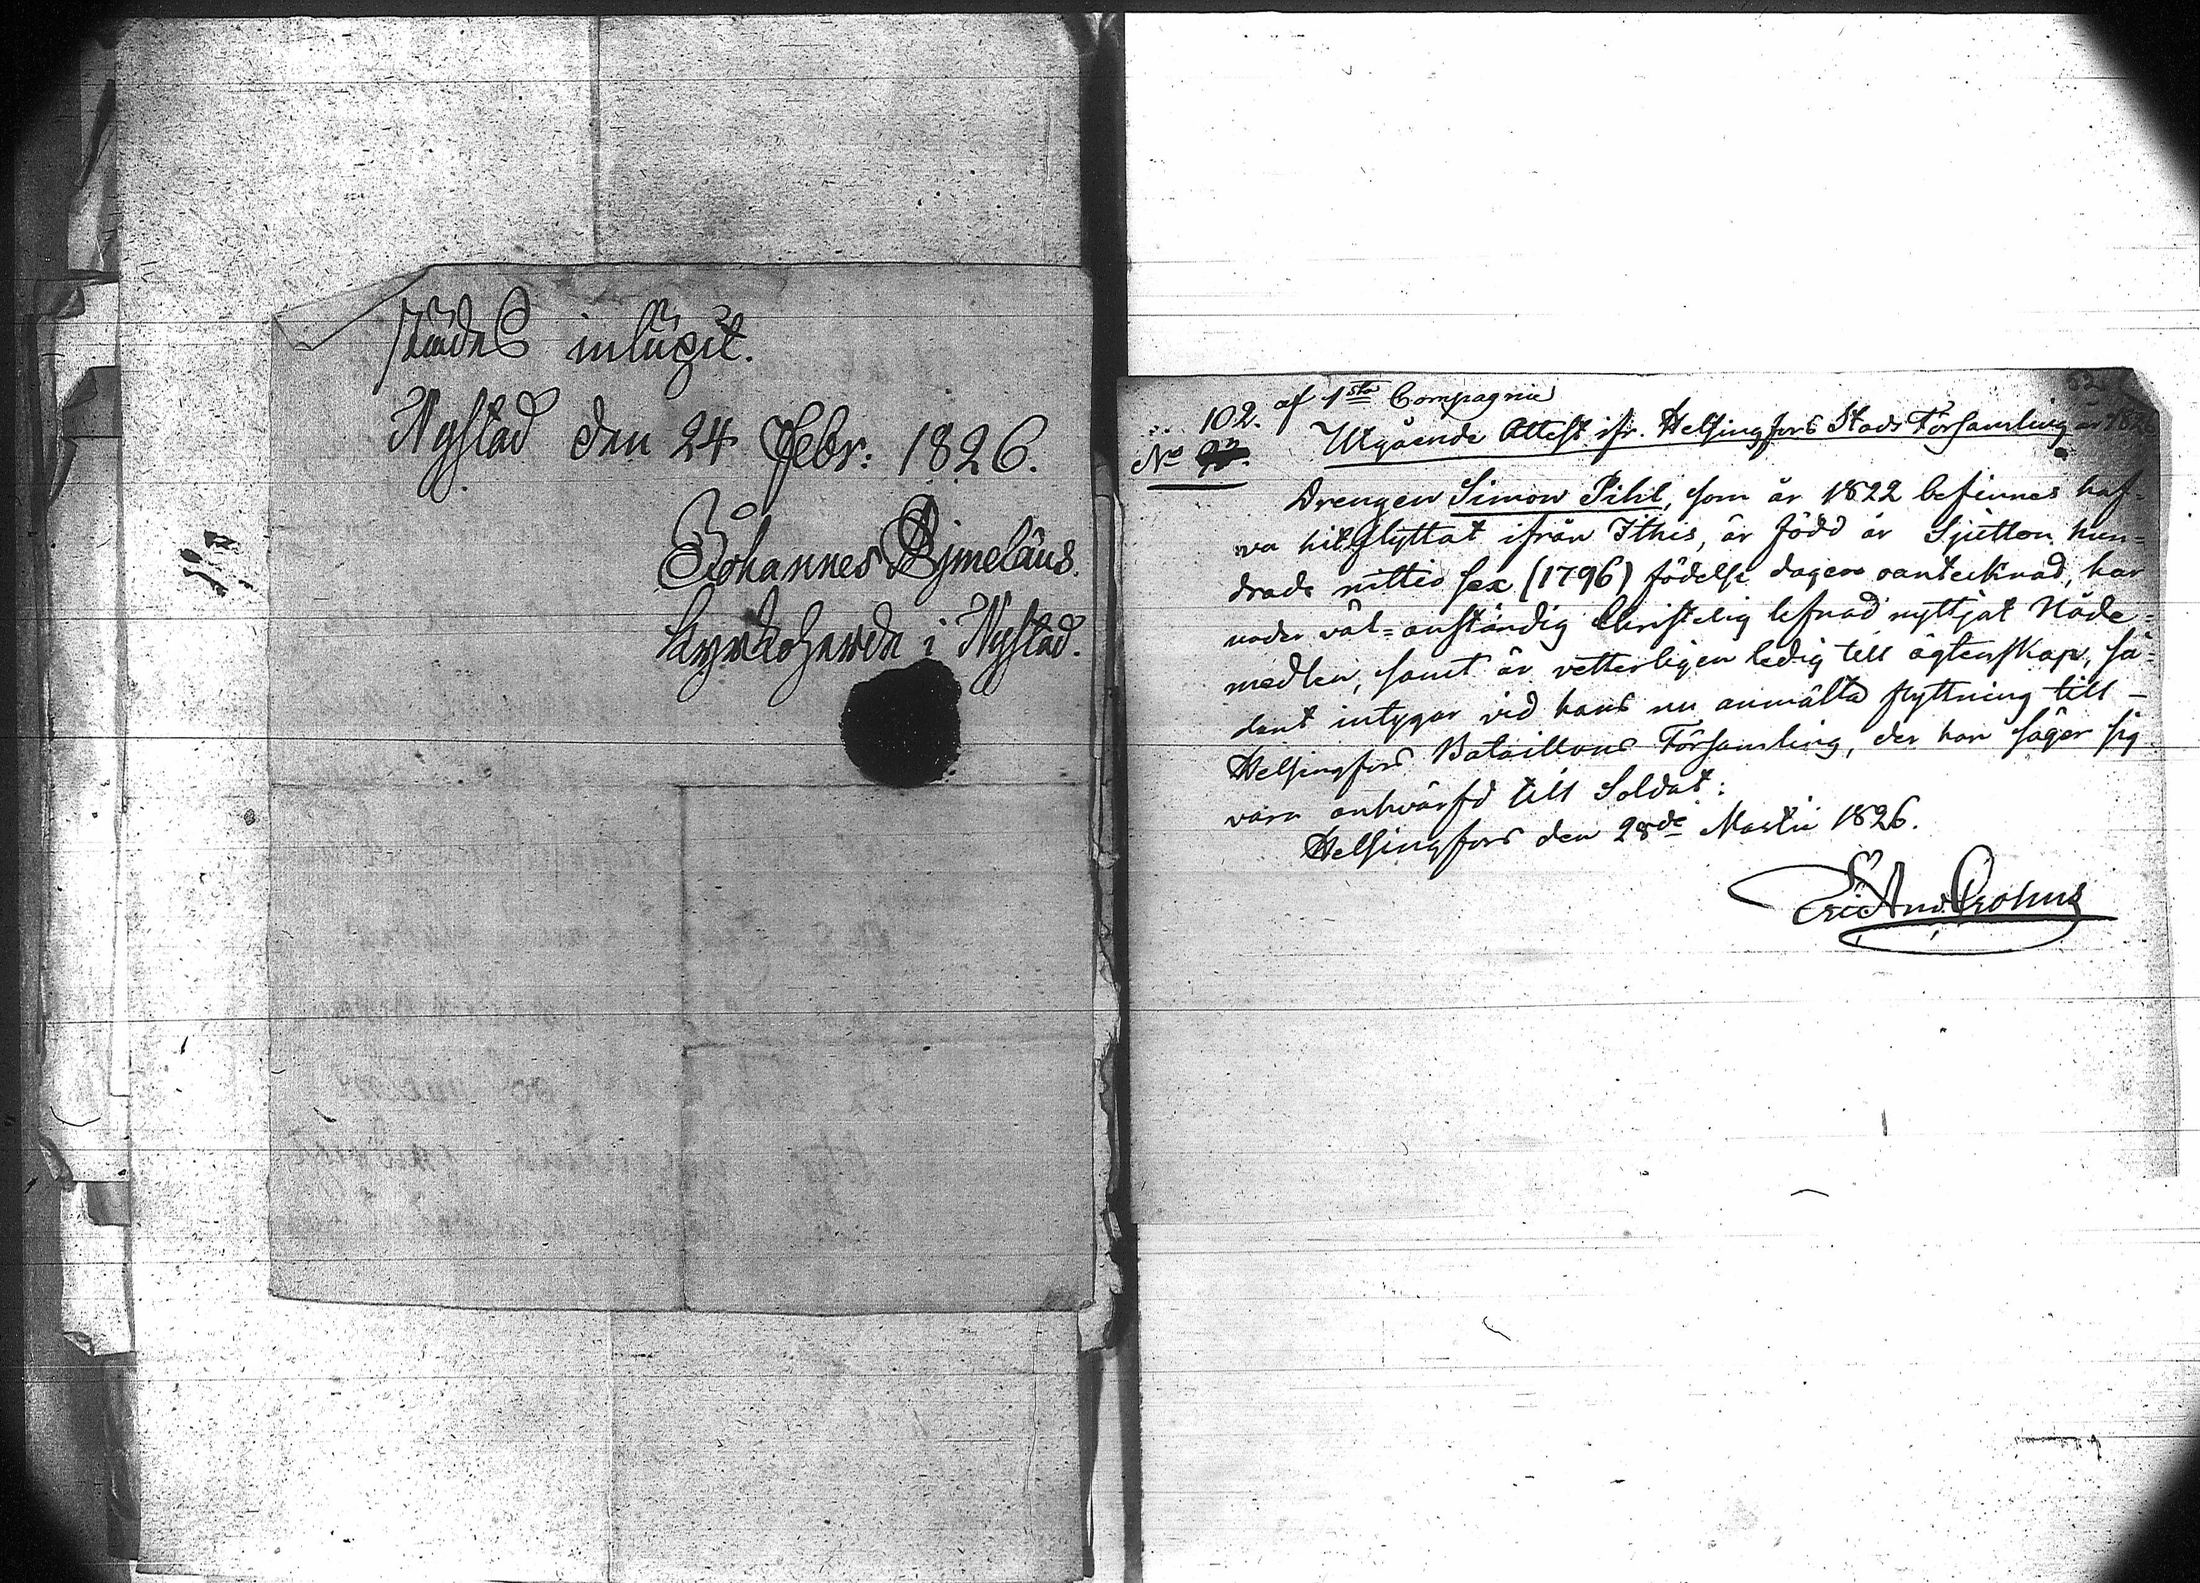 städes intÿgit.
Nÿstad den 24 Febr: 1826.
Johannes
Kyrkoherde i Nÿstad.
52.
102. af 1sta Compagnie
No Utgående Attest ifr. Helsingfors Stads Församling år
Drengen Simon Pihl, som år 1822 befinnes haf-
va hitflyttat ifrån Ithis, är född år Sjutton hun=
drade nittio sex (1796) födelse dagen oantecknad, har
under väl-anständig Christelig lefnad nyttjat Nåde=
medlen, samt är vetterligen ledig till ägtenskap, så=
dant intygar vid hans nu anmälta flyttning till -
Helsingfors Bataillons Församling, der han säger sig
vara antvärfd till Soldat:
Helsingfors den 28de Martii 1826.
Eric And. Crohns